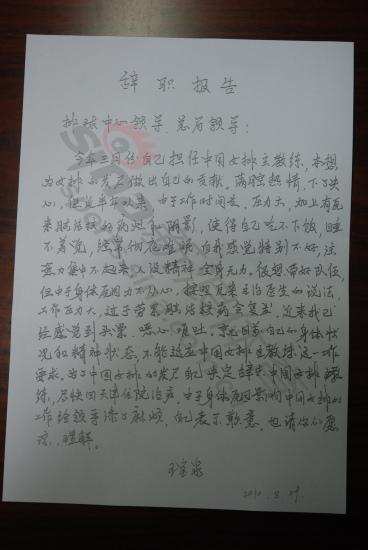 辞职报告
排球中心领导、总局领导：
今年三月份自己担任中国女排主教练，本想
为女排的发展做出自己的贡献，满腔热情，下了决
心，但是半年以来，由于工作时间长，压力大，加上有瓦
来肺治核的病灶和阴影，使得自己吃不下饭，睡
不着觉，经常彻夜难眠，自我感觉特别不好，注
意力集中不起来，没精神，全身无力，很想带好队伍，
但由于身体原因力不从心，按照瓦来主治医生的说法，
工作压力大，过于劳累肺治核病会复发，近来我已
经感觉到头晕、恶心、呕吐，就目前自己的身体状
况和精神状态，不能适应中国女排主教练这一工作
要求，为了中国女排的发展自己决定辞去中国女排教
练，尽快回天津住院治疗，由于身体原因影响中国女排的
工作给领导添了麻烦，自己表示歉意，也请你们原
谅、理解。
王宝泉
2010.8.29